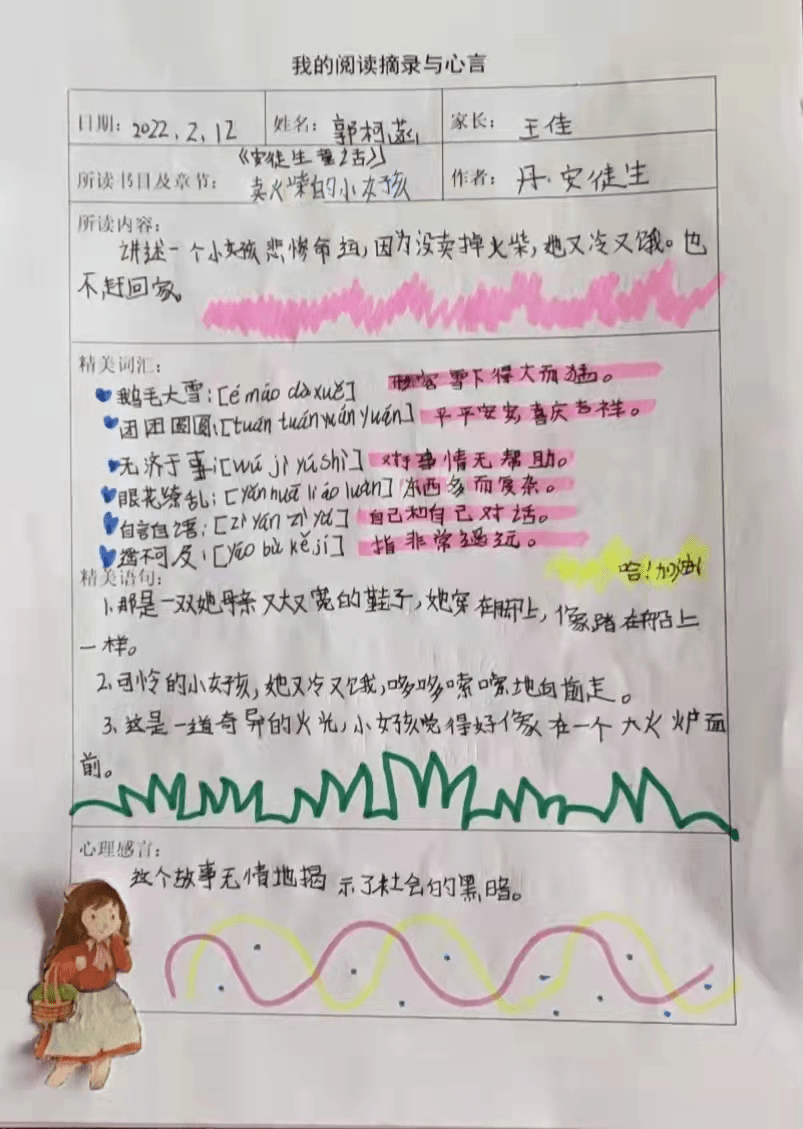 我的阅读摘录与心言
日期: 2022.2.12 姓名: 郭柯 家长: 王佳
《安徒生童话》
所读书目及章节: 卖火柴的小女孩 作者: 丹.安徒生
所读内容:
讲述一个小女孩悲惨命运,因为没卖掉火柴,她又冷又饿。也
不赶回家。
精美词汇:
鹅毛大雪:[é máo dà xuě] 形容雪下得大而猛。
团团圆圆:[tuán tuán yuán yuán] 平平安安喜庆吉祥。
无济于事:[wú jì yú shì] 对事情无帮助。
眼花缭乱:[yǎn huā liáo luàn] 东西多而复杂。
自言自语:[zì yán zì yǔ] 自己和自己对话。
遥不可及:[yáo bù kě jí] 指非常遥远。
哈!加油!
精美语句:
1.那是一双她母亲又大又宽的鞋子,她穿在脚上,像踏在船上
一样。
2.可怜的小女孩,她又冷又饿,哆哆嗦嗦地向前走。
3.这是一道奇异的火光,小女孩觉得好像在一个大火炉面
前。
心理感言:
这个故事无情地揭示了社会的黑暗。